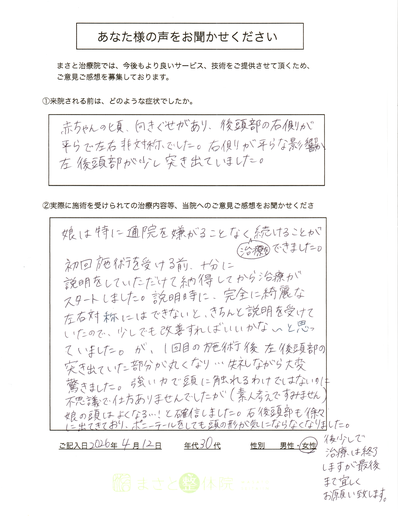 あなた様の声をお聞かせください
まさと治療院では、今後もより良いサービス、技術をご提供させて頂くため、
ご意見ご感想を募集しております。
①来院される前は、どのような症状でしたか。
赤ちゃんの頃、向きぐせがあり、後頭部の右側が
平らで左右非対称でした。右側が平らな影響か
左後頭部が少し突き出ていました。
②実際に施術を受けられての治療内容等、当院へのご意見ご感想をお聞かせくださ
娘は特に通院を嫌がることなく続けることが
治療を
できました。
初回施術を受ける前、十分に
説明をしていただけて納得してから治療が
スタートしました。説明時に、完全に綺麗な
左右対称にはできないと、きちんと説明を受けて
いたので、少しでも改善すればいいかな〜と思っ
ていました。が、1回目の施術後左後頭部の
突き出ていた部分が丸くなり…失礼ながら大変
驚きました。強い力で頭に触れるわけではないのに
不思議で仕方ありませんでしたが(素人考えですみません)
娘の頭はよくなる…!と確信しました。右後頭部も徐々
に出てきており、ポニーテールをしても頭の形が気にならなくなりました。
後少しで
治療は終了
しますが最後
まで宜しく
お願い致します。
ご記入日2026年4月12日 年代30代 性別 男性・女性
まさと整体院